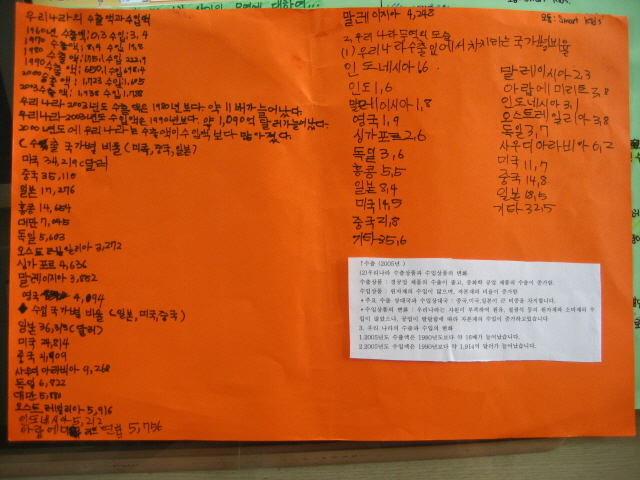 우리나라의 수출액과 수입액
1960년 수출액; 0,3 수입; 3,4
1970 수출액; 8,4 수입 19,8
1980 수출액; 175,1 수입 222,9
1990 수출액; 650,1 수입 698,4
2000 수출액; 1,723 수입 1,605
2003 수출액; 1,938 수입 1,788
우리나라 2003년도 수출액은 1980년보다 약 11배가 늘어났다.
우리나라 2003년도 수입액은 1990년보다 약 1,090억 달러가 늘어났다.
2000년도에 우리나라는 수출액이 수입액보다 많아졌다.
(수출 국가별 비율 (미국, 중국, 일본)
미국 34,219 (달러)
중국 35,110
일본 17,276
홍콩 14,654
대만 7,045
독일 5,603
오스트레일리아 3,272
싱가포트 4,636
말레이지아 3,852
영국 4,094
수입 국가별 비율 (일본, 미국, 중국)
일본 36,313 (달러)
미국 24,814
중국 21,909
사우디아라비아 9,268
독일 6,822
대만 5,880
오스트레일리아 5,916
인도네시아 5,212
아랍에미 연합 5,756
말레이지아 4,248
2, 우리나라 무역의 모습
(1) 우리나라 수출입에서 차지하는 국가별 비율
인도네시아 1,6
인도 1,6
말레이지아 1,8
영국 1,9
싱가포트 2,6
독일 3,6
홍콩 5,5
일본 8,4
미국 14,5
중국 21,8
기타 35,6
모둠: Smart kids
말레이지아 2,3
아랍에미리트 3,8
인도네시아 3,1
오스트레일리아 3,8
독일 3,7
사우디아라비아 6,2
미국 11,7
중국 14,8
일본 18,5
기타 32,5
↑수출 (2005년 )
(2)우리나라 수출상품과 수입상품의 변화
수출상품 : 경공업 제품의 수출이 줄고, 중화학 공업 제품의 수출이 증가함
수입상품 : 원자재의 수입이 많으며, 자본재의 비율이 증가함
*주요 수출 상대국과 수입상대국 : 중국,미국,일본이 큰 비중을 차지합니다.
*수입상품의 변화 : 우리나라는 자원이 부족하여 원유, 철광석 등의 원자재와 소비재의 수
입이 많았으나, 공업이 발달함에 따라 자본재의 수입이 증가하고있습니다.
3. 우리 나라의 수출과 수입의 변화
1.2005년도 수출액은 1980년도보다 약 16배가 늘어났습니다.
2.2005년도 수입액은 1990년도보다 약 1,914억 달러가 늘어났습니다.